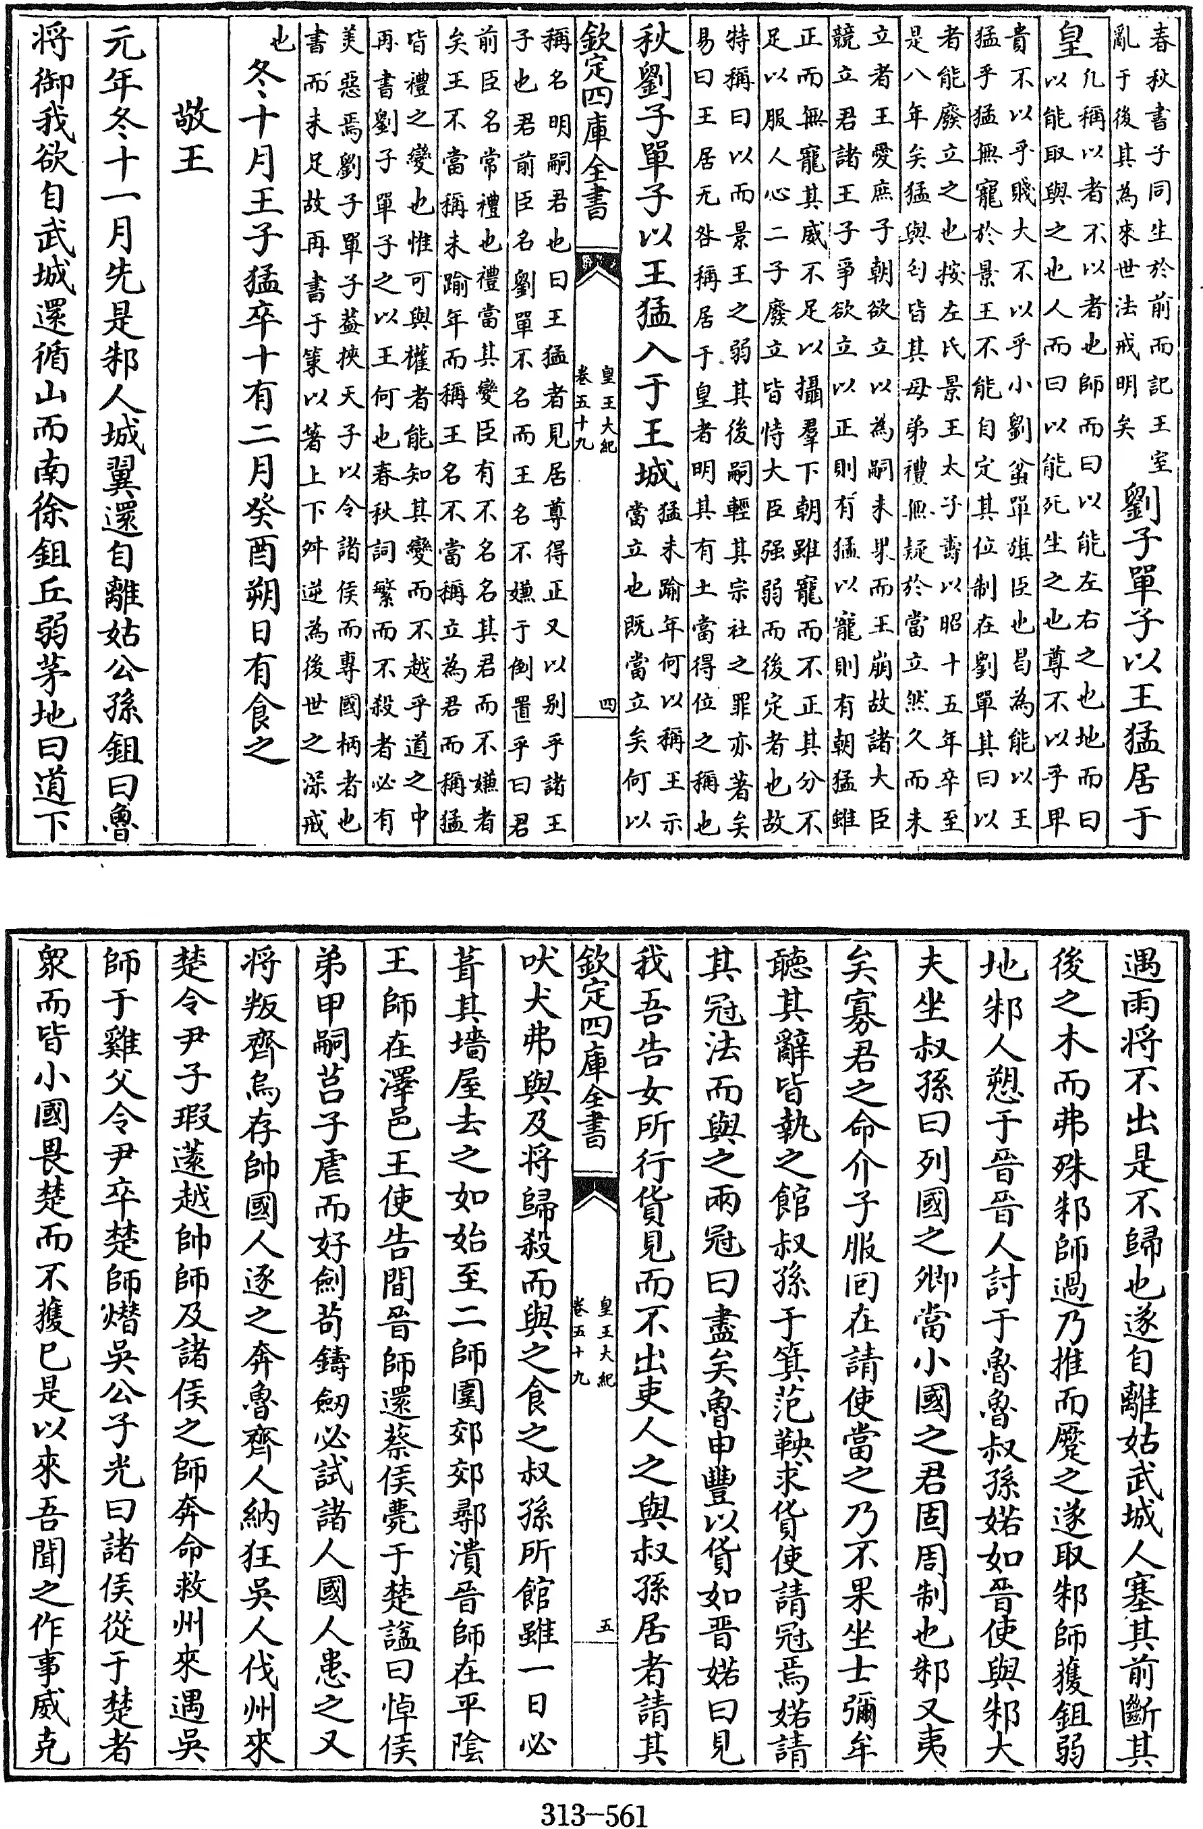 春秋書子同生於前而記王室
亂于後其為來世法戒明矣
劉子單子以王猛居于
皇
凡稱以者不以者也師而曰以能左右之也地而曰
以能取與之也人而曰以能死生之也尊不以乎卑
貴不以乎賤大不以乎小劉蚠單旗臣也曷為能以王
猛乎猛無寵於景王不能自定其位制在劉單其曰以
者能廢立之也按左氏景王太子壽以昭十五年卒至
是八年矣猛與匄皆其母弟禮無疑於當立然久而未
立者王愛庶子朝欲立以為嗣未果而王崩故諸大臣
競立君諸王子爭欲立以正則有猛以寵則有朝猛雖
正而無寵其威不足以攝羣下朝雖寵而不正其分不
足以服人心二子廢立皆恃大臣强弱而後定者也故
特稱曰以而景王之弱其後嗣輕其宗社之罪亦著矣
易曰王居无咎稱居于皇者明其有土當得位之稱也
秋劉子單子以王猛入于王城
猛未踰年何以稱王示
當立也既當立矣何以
欽定四庫全書
皇王大紀
卷五十九
四
稱名明嗣君也曰王猛者見居尊得正又以别乎諸王
子也君前臣名劉單不名而王名不嫌于倒置乎曰君
前臣名常禮也禮當其變臣有不名名其君而不嫌者
矣王不當稱未踰年而稱王名不當稱立為君而稱猛
皆禮之變也惟可與權者能知其變而不越乎道之中
再書劉子單子之以王何也春秋詞繁而不殺者必有
美惡焉劉子單子葢挾天子以令諸侯而專國柄者也
書而未足故再書于策以著上下舛逆為後世之深戒
也
冬十月王子猛卒十有二月癸酉朔日有食之
敬王
元年冬十一月先是邾人城翼還自離姑公孫鉏曰魯
将御我欲自武城還循山而南徐鉏丘弱茅地曰道下
遇雨将不出是不歸也遂自離姑武城人塞其前斷其
後之木而弗殊邾師過乃推而蹷之遂取邾師獲鉏弱
地邾人愬于晉晉人討于魯魯叔孫婼如晉使與邾大
夫坐叔孫曰列國之卿當小國之君固周制也邾又夷
矣寡君之命介子服回在請使當之乃不果坐士彌牟
聽其辭皆執之館叔孫于箕范鞅求貨使請冠焉婼請
其冠法而與之兩冠曰盡矣魯申豐以貨如晉婼曰見
我吾告女所行貨見而不出吏人之與叔孫居者請其
欽定四庫全書
皇王大紀
卷五十九
五
吠犬弗與及将歸殺而與之食之叔孫所館雖一日必
葺其墻屋去之如始至二師圍郊郊鄩潰晉師在平陰
王師在澤邑王使告間晉師還蔡侯薨于楚諡曰悼侯
弟甲嗣莒子虐而好劍苟鑄劒必試諸人國人患之又
将叛齊烏存帥國人逐之奔魯齊人納狂吳人伐州來
楚令尹子瑕薳越帥師及諸侯之師奔命救州來遇吳
師于雞父令尹卒楚師熸吳公子光曰諸侯從于楚者
衆而皆小國畏楚而不獲已是以來吾聞之作事威克
313-561